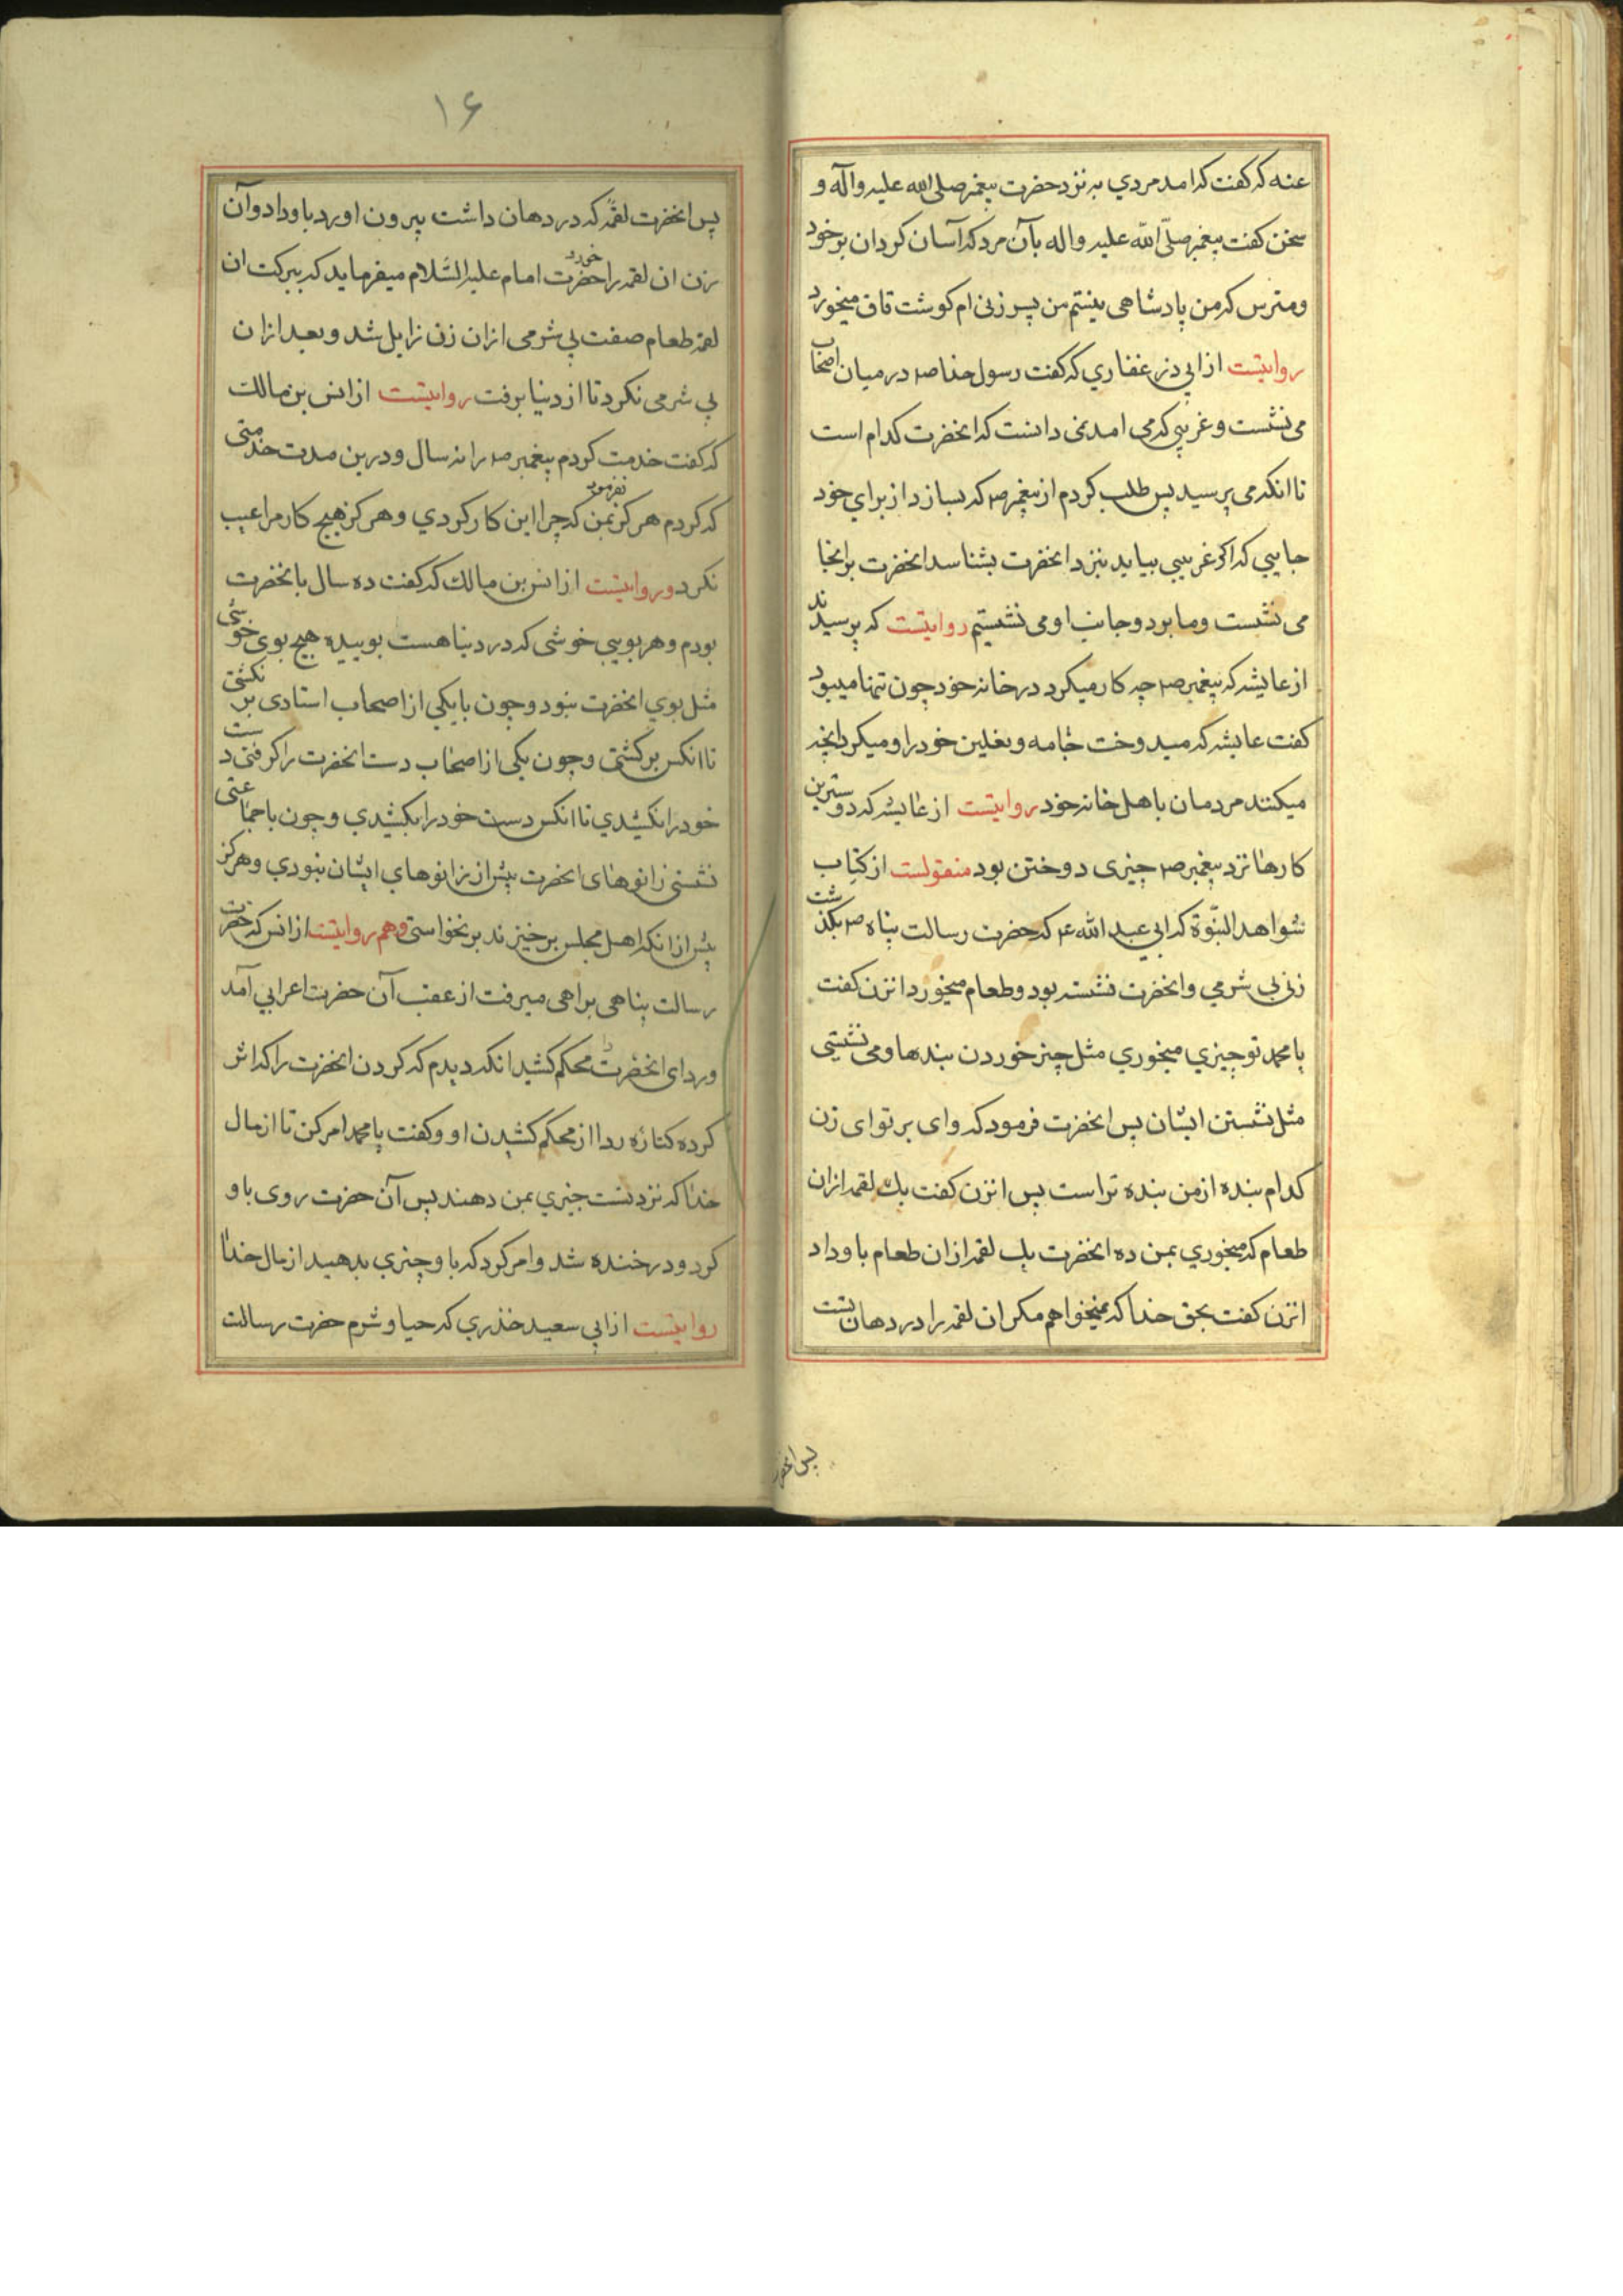 عنه که کفت که امد مردي به نزد حضرت پیغمبر صلی الله علیه وآله و
سخن کفت پیغمبر صلّی اللّه علیه واله بآن مرد که آسان کردان بر خود
ومترس که من پادشاهی نیستم من پسر زنی ام کوشت قاق میخورد
روایتست از ابی ذر غفاري که کفت رسول خدا ص در میان اصحاب
می نشست و غریبی که می امد نمی دانست که انحضرت کدام است
تا انکه می پرسید پس طلب کردم از پیغمبر ص که بسازد از براي خود
جایی که اکر غریبی بیاید بنزد انحضرت بشناسد انحضرت برانجا
می نشست وما بر دو جانب او می نشستیم روایتست که پرسیدند
از عایشه که پیغمبر ص چه کار میکرد در خانه خود چون تنها میبود
کفت عایشه که میدوخت جامه و نعلین خود را و میکرد انچه
میکنند مردمان با هل خانه خود روایتست از عایشه که دوسترین
کارها نزد پیغمبر ص چیزی دوختن بود منقولست از کتاب
شواهد النبّوة که ابی عبد الله ع که حضرت رسالت پناه ص بکذشت
زنی بی شرمي وانحضرت نشسته بود و طعام میخورد انزن کفت
یا محمد تو چیزي میخوري مثل چیز خوردن بندها و می نشینی
مثل نشستن ایشان پس انحضرت فرمود که وای بر تو ای زن
کدام بنده از من بنده تر است پس انزن کفت یك لقمه ازان
طعام که میخوري بمن ده انحضرت یك لقمه ازان طعام باو داد
انزن کفت بحق خدا که نمیخواهم مکر ان لقمه را در دهان تست
پس انحضرت
۱۶
پس انحضرت لقمه که در دهان داشت بیرون اورد باو داد و آن
زن ان لقمه را خورد حضرت امام علیه السّلام میفرماید که ببرکت ان
لقمه طعام صفت بی شرمی ازان زن زایل شد و بعد ازان
بی شرمی نکرد تا از دنیا برفت روایتست از انس بن مالك
که کفت خدمت کردم پیغمبر ص را نه سال و درین مدت خدمتی
که کردم هرکز بمن نفرمود که چرا این کار کردي و هرکز هیچ کار مرا عیب
نکرد و روایتست از انس بن مالك که کفت ده سال با نحضرت
بودم و هر بویی خوشی که در دنیا هست بوییده هیچ بوی خوشی
مثل بوي انحضرت نبود و چون با یکی از اصحاب استادی بر نکشتی
تا انکس بر کشتی و چون یکی از اصحاب دست انحضرت را کرفتی دست
خود را نکشیدي تا انکس دست خود را بکشیدي و چون با جماعتی
نشستی زانوهای انحضرت پیش از زانوهاي ایشان نبودي و هرکز
پیش از انکه اهل مجلس برخیزند بر نخواستی و هم روایتست از انس که حضرت
رسالت پناهی براهی میرفت از عقب آن حضرت اعرابي آمد
و ردای انحضرت را محکم کشید انکه دیدم که کردن انحضرت را که اش
کرده کناره ردا از محکم کشیدن او و کفت یا محمد امر کن تا از مال
خدا که نزد تست چیزي بمن دهند پس آن حضرت روی باو
کرد و در خنده شد و امر کرد که باو چیزي بدهید از مال خدا
روایتست از ابی سعید خذري که حیا و شرم حضرت رسالت